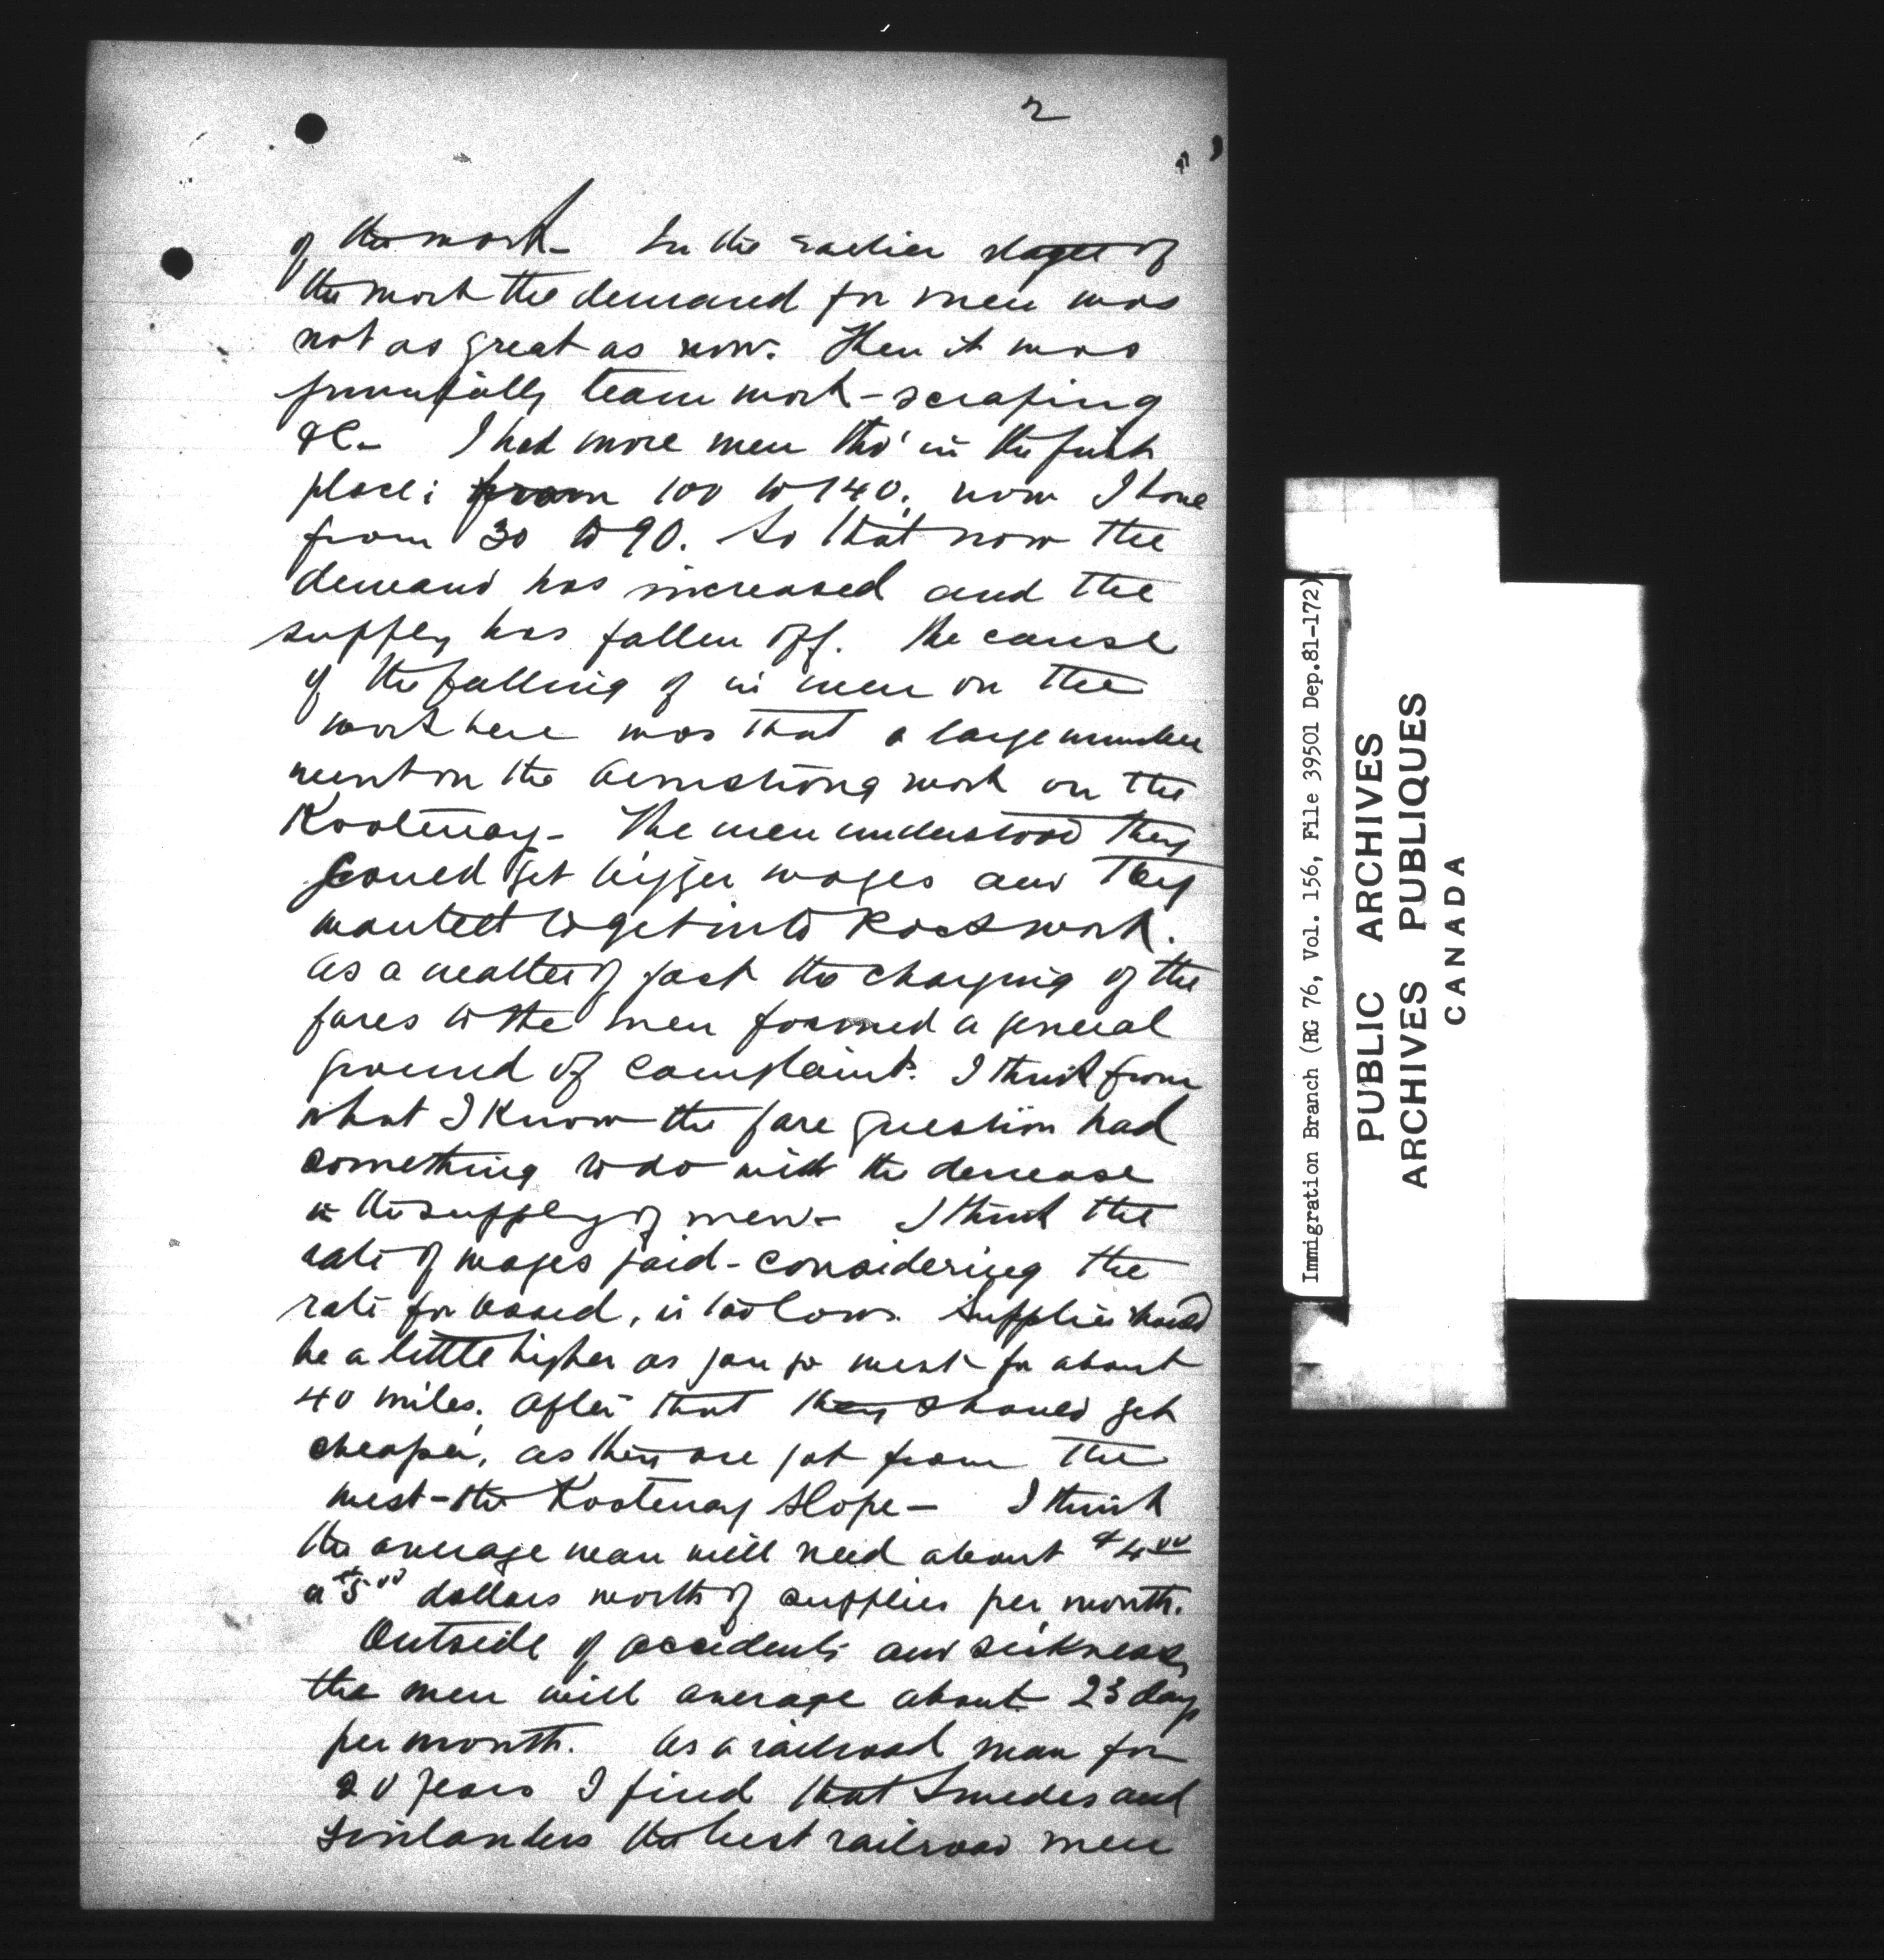 2
of the work - In the earlier stages of
the work the demand for men was
not as great as now. Then it was
principally team work - scraping
&c - I had more men tho' in the first
place; from 100 to 140; now I have
from 30 to 90. So that now the
demand has increased and the
supply has fallen off. The cause
of the falling of in men on the
work here was that a large number
went on the Armstrong work on the
Kootenay - The men understood they
could get bigger wages and they
wanted to get into Rock work.
As a matter of fact the charging of the
fares to the men formed a general
ground of complaint. I think from
what I know the fare question had
something to do with the decrease
in the supply of men - I think the
rate of wages paid - considering the
rate for board, is too low. Supplies should
be a little higher as you go west for about
40 miles. After that they should get
cheaper, as they are got from the
west - the Kootenay slope - I think
the average man will need about $4.00
or $5.00 dollars worth of supplies per month.
Outside of accidents and sickness,
the men will average about 23 days
per month. As a railroad man for
20 years I find that Swedes and
Finlanders the best railroad men
Immigration Branch (RG 76, Vol. 156, File 39501 Dep.81-172)
PUBLIC ARCHIVES
ARCHIVES PUBLIQUES
CANADA